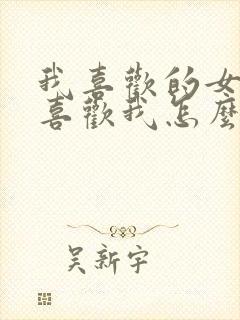 我喜歡的女
喜歡我怎麼
吴新宇